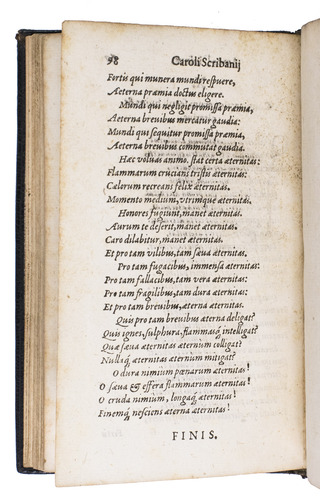 98 Caroli Scribanij
Fortis qui munera mundi respuere,
Æterna præmia doctus eligere.
Mundi qui negligit promissa præmia,
Æterna brevibus mercatur gaudia:
Mundi qui sequitur promissa præmia,
Æterna brevibus commutat gaudia.
Hæc voluas animo. stat certa æternitas:
Flammarum crucians tristis æternitas.
Cælorum recreans felix æternitas.
Momento medium, vtrimque æternitas.
Honores fugiunt, manet æternitas.
Aurum te deserit, manet æternitas.
Caro dilabitur, manet æternitas.
Et pro tam vilibus, tam sæua æternitas.
Pro tam fugacibus, immensa æternitas:
Pro tam fallacibus, tam vera æternitas.
Pro tam fragilibus, tam dura æternitas:
Et pro tam brevibus, æterna æternitas.
Quis pro tam brevibus æterna deligat?
Quis ignes, sulphura, flammasq́ intelligat?
Quæ sæua æternitas æternum colligat?
Nullaq́ æternitas æternum mitigat?
O dura nimium pœnarum æternitas!
O sæua & effera flammarum æternitas!
O cruda nimium, longaq́ æternitas!
Finemq́ nesciens æterna æternitas!
FINIS.